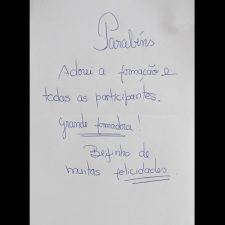 Parabéns
Adorei a formação e
todas as participantes.
Grande formadora!
Beijinho de
muitas felicidades.